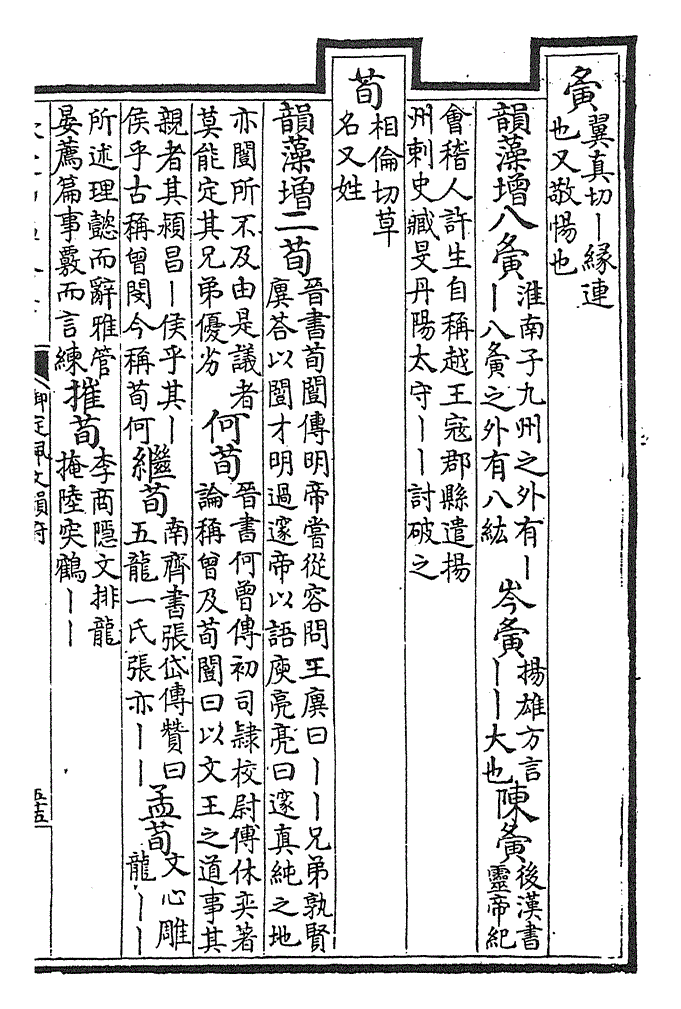 夤翼真切丨緣連
也又敬惕也
韻藻增八夤淮南子九州之外有丨
丨八夤之外有八紘
岑夤揚雄方言
丨丨大也
陳夤後漢書
靈帝紀
會稽人許生自稱越王寇郡縣遣揚
州刺史臧旻丹陽太守丨丨討破之
荀相倫切草
名又姓
韻藻增二荀晉書荀闓傳明帝嘗從容問王廙曰丨丨兄弟孰賢
廙荅以闓才明過邃帝以語庾亮亮曰邃真純之地
亦闓所不及由是議者
莫能定其兄弟優劣
何荀晉書何曾傳初司隸校尉傅休奕著
論稱曾及荀闓曰以文王之道事其
親者其潁昌丨侯乎其丨
侯乎古稱曾閔今稱荀何
繼荀南齊書張岱傳贊曰
五龍一氏張亦丨丨
孟荀文心雕
龍丨丨
所述理懿而辭雅管
晏薦篇事覈而言練
摧荀李商隱文排龍
掩陸突鶴丨丨
御定佩文韻府